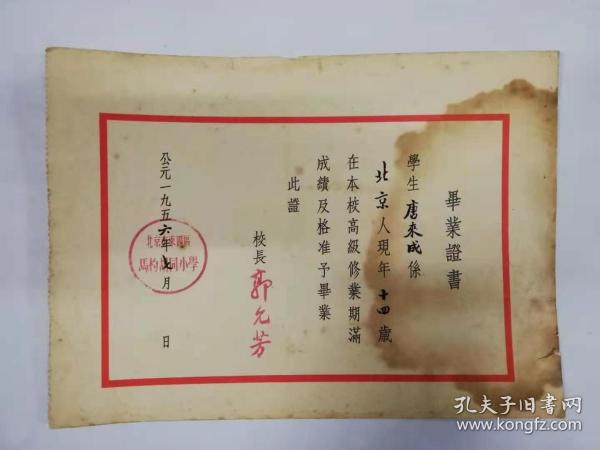 畢業證書
學生唐來成係
北京人現年十四歲
在本校高級修業期滿
成績及格准予畢業
此證
校長郭允芳
公元一九五六年七月 日
北京
小學
孔夫子旧书网
www.kongfz.com